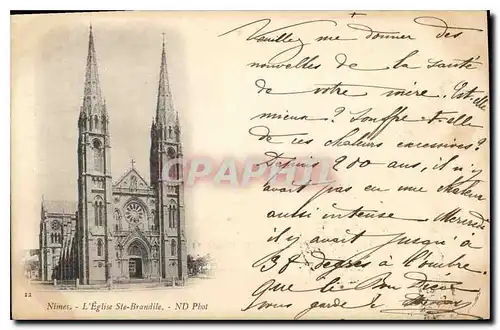 Veuillez me donner des
nouvelles de la santé
de votre mère. Est-elle
mieux? Souffre-t-elle
de ces chaleurs excessives?
Depuis 200 ans, il n'y
avait pas eu une chaleur
aussi intense Mercredi
il y avait jusqu'à
38 degrés à l'ombre.
Que le Bon Dieu
vous garde
CPARAMA
22
Nimes. - L'Église Ste-Brandile. - ND Phot